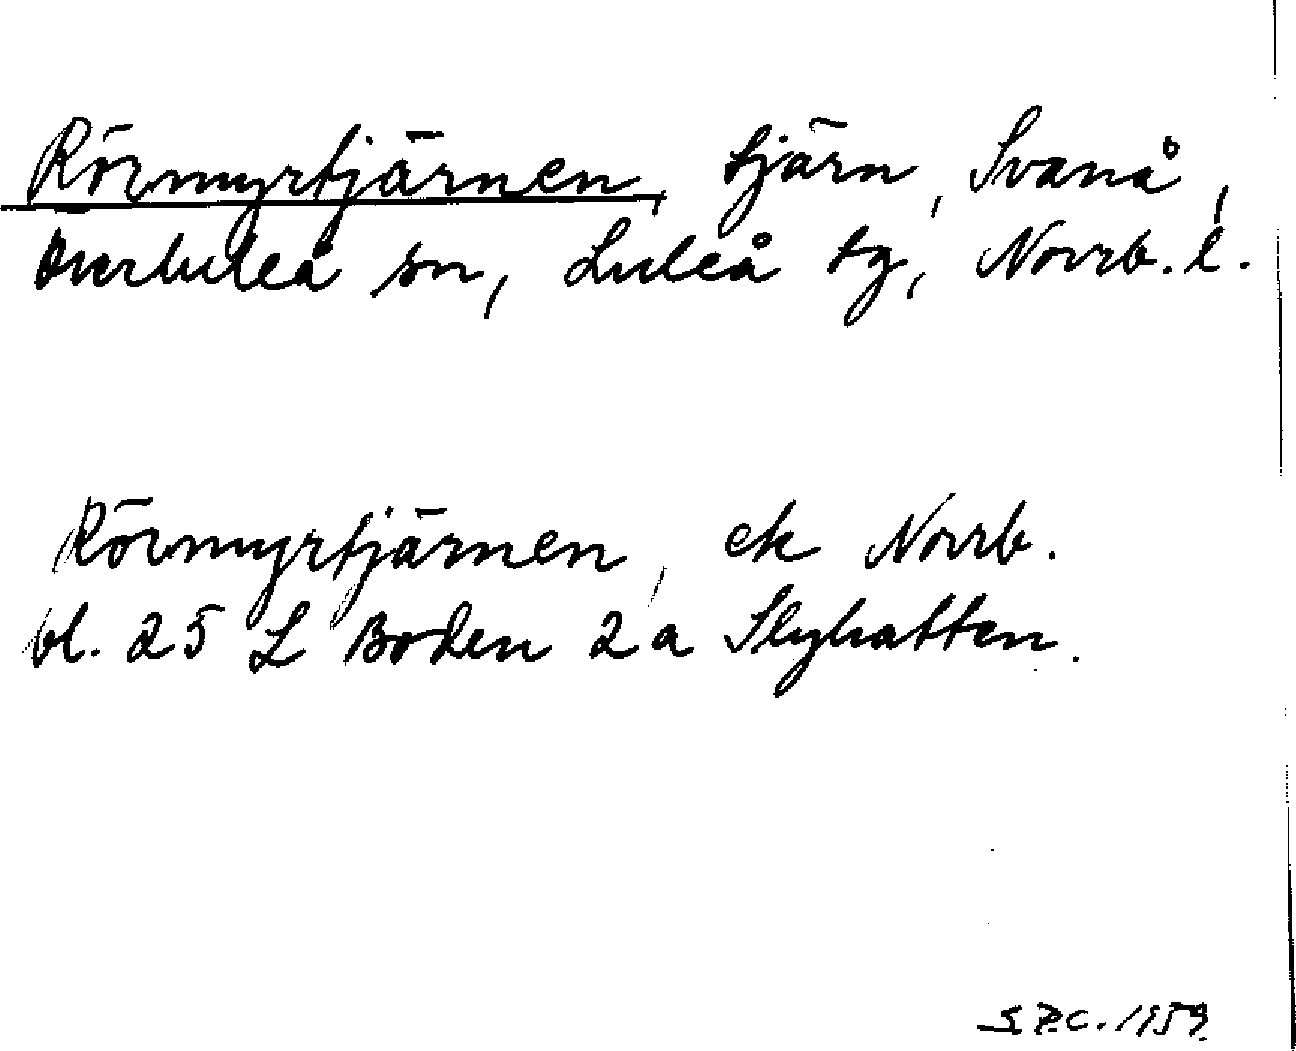 Rörmyrtjärnen, tjärn, Svanå,
Överluleå sn, Luleå tg, Norrb. l.
Rörmyrtjärnen, ek Norrb.
bl. 25 L Boden 2a Slyhatten.
1959